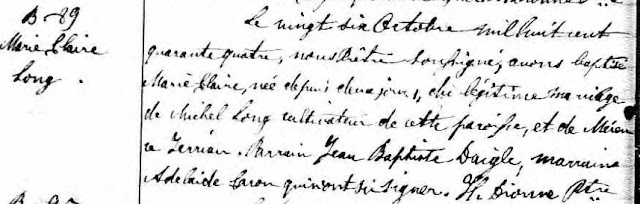 B-89
Marie Claire
Long.
Le vingt six Octobre mil huit cent
quarante quatre, nous Prêtre soussigné, avons baptisé
Marie Claire, née depuis deux jours, du légitime mariage
de Michel Long cultivateur de cette paroisse, et de
Terrian. Parrain Jean Baptiste Daigle, marraine
Adelaide Caron qui n'ont su signer. H. Dionne Ptre